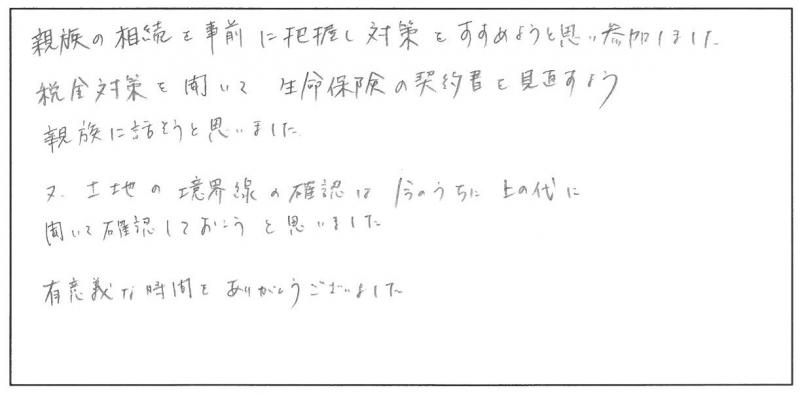 親族の相続を事前に把握し対策をすすめようと思い参加しました
税金対策を聞いて 生命保険の契約書を見直すよう
親族に話そうと思いました
又、土地の境界線の確認は今のうちに上の代に
聞いて確認しておこうと思いました
有意義な時間をありがとうございました